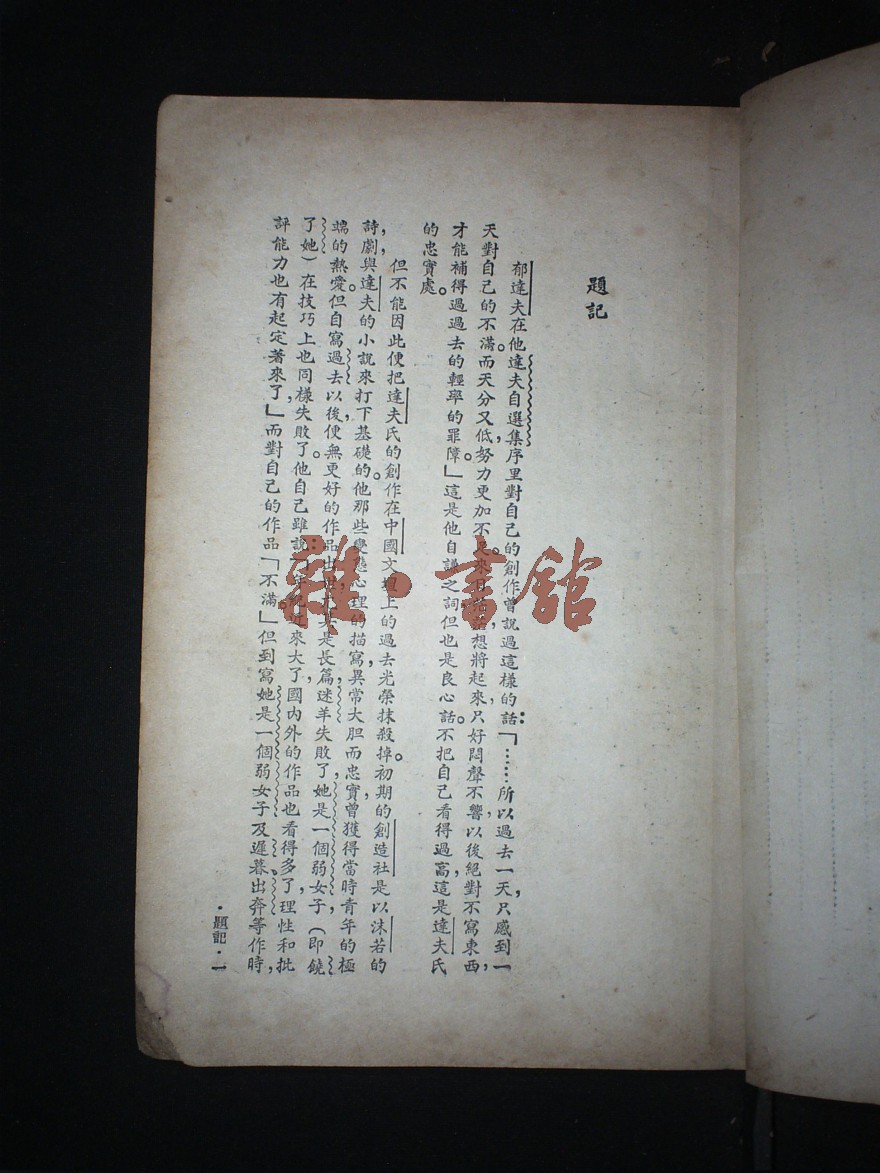 題記
郁達夫在他達夫自選集序里對自己的創作曾說過這樣的話：「……所以過去一天，只感到一
天對自己的不滿。而天分又低，努力更加不足。來日茫茫，想將起來，只好悶聲不響，以後絕對不寫東西，
才能補得過過去的輕率的罪障。」這是他自謙之詞，但也是良心話。不把自己看得過高，這是達夫氏
的忠實處。
但不能因此便把達夫氏的創作在中國文壇上的過去光榮抹殺掉。初期的創造社是以沫若的
詩，劇與達夫的小說來打下基礎的。他那些變態心理的描寫，異常大胆而忠實，曾獲得當時青年的極
端的熱愛。但自寫過去以後，便無更好的作品出 是長篇迷羊失敗了，她是一個弱女子（即饒
了她）在技巧上也同樣失敗了。他自己雖說：「年紀近來大了，國內外的作品也看得多了，理性和批
評能力也有起定著來了，」而對自己的作品「不滿。」但到寫她是一個弱女子及遲暮。出奔等作時，
·題記·一
雜·書館